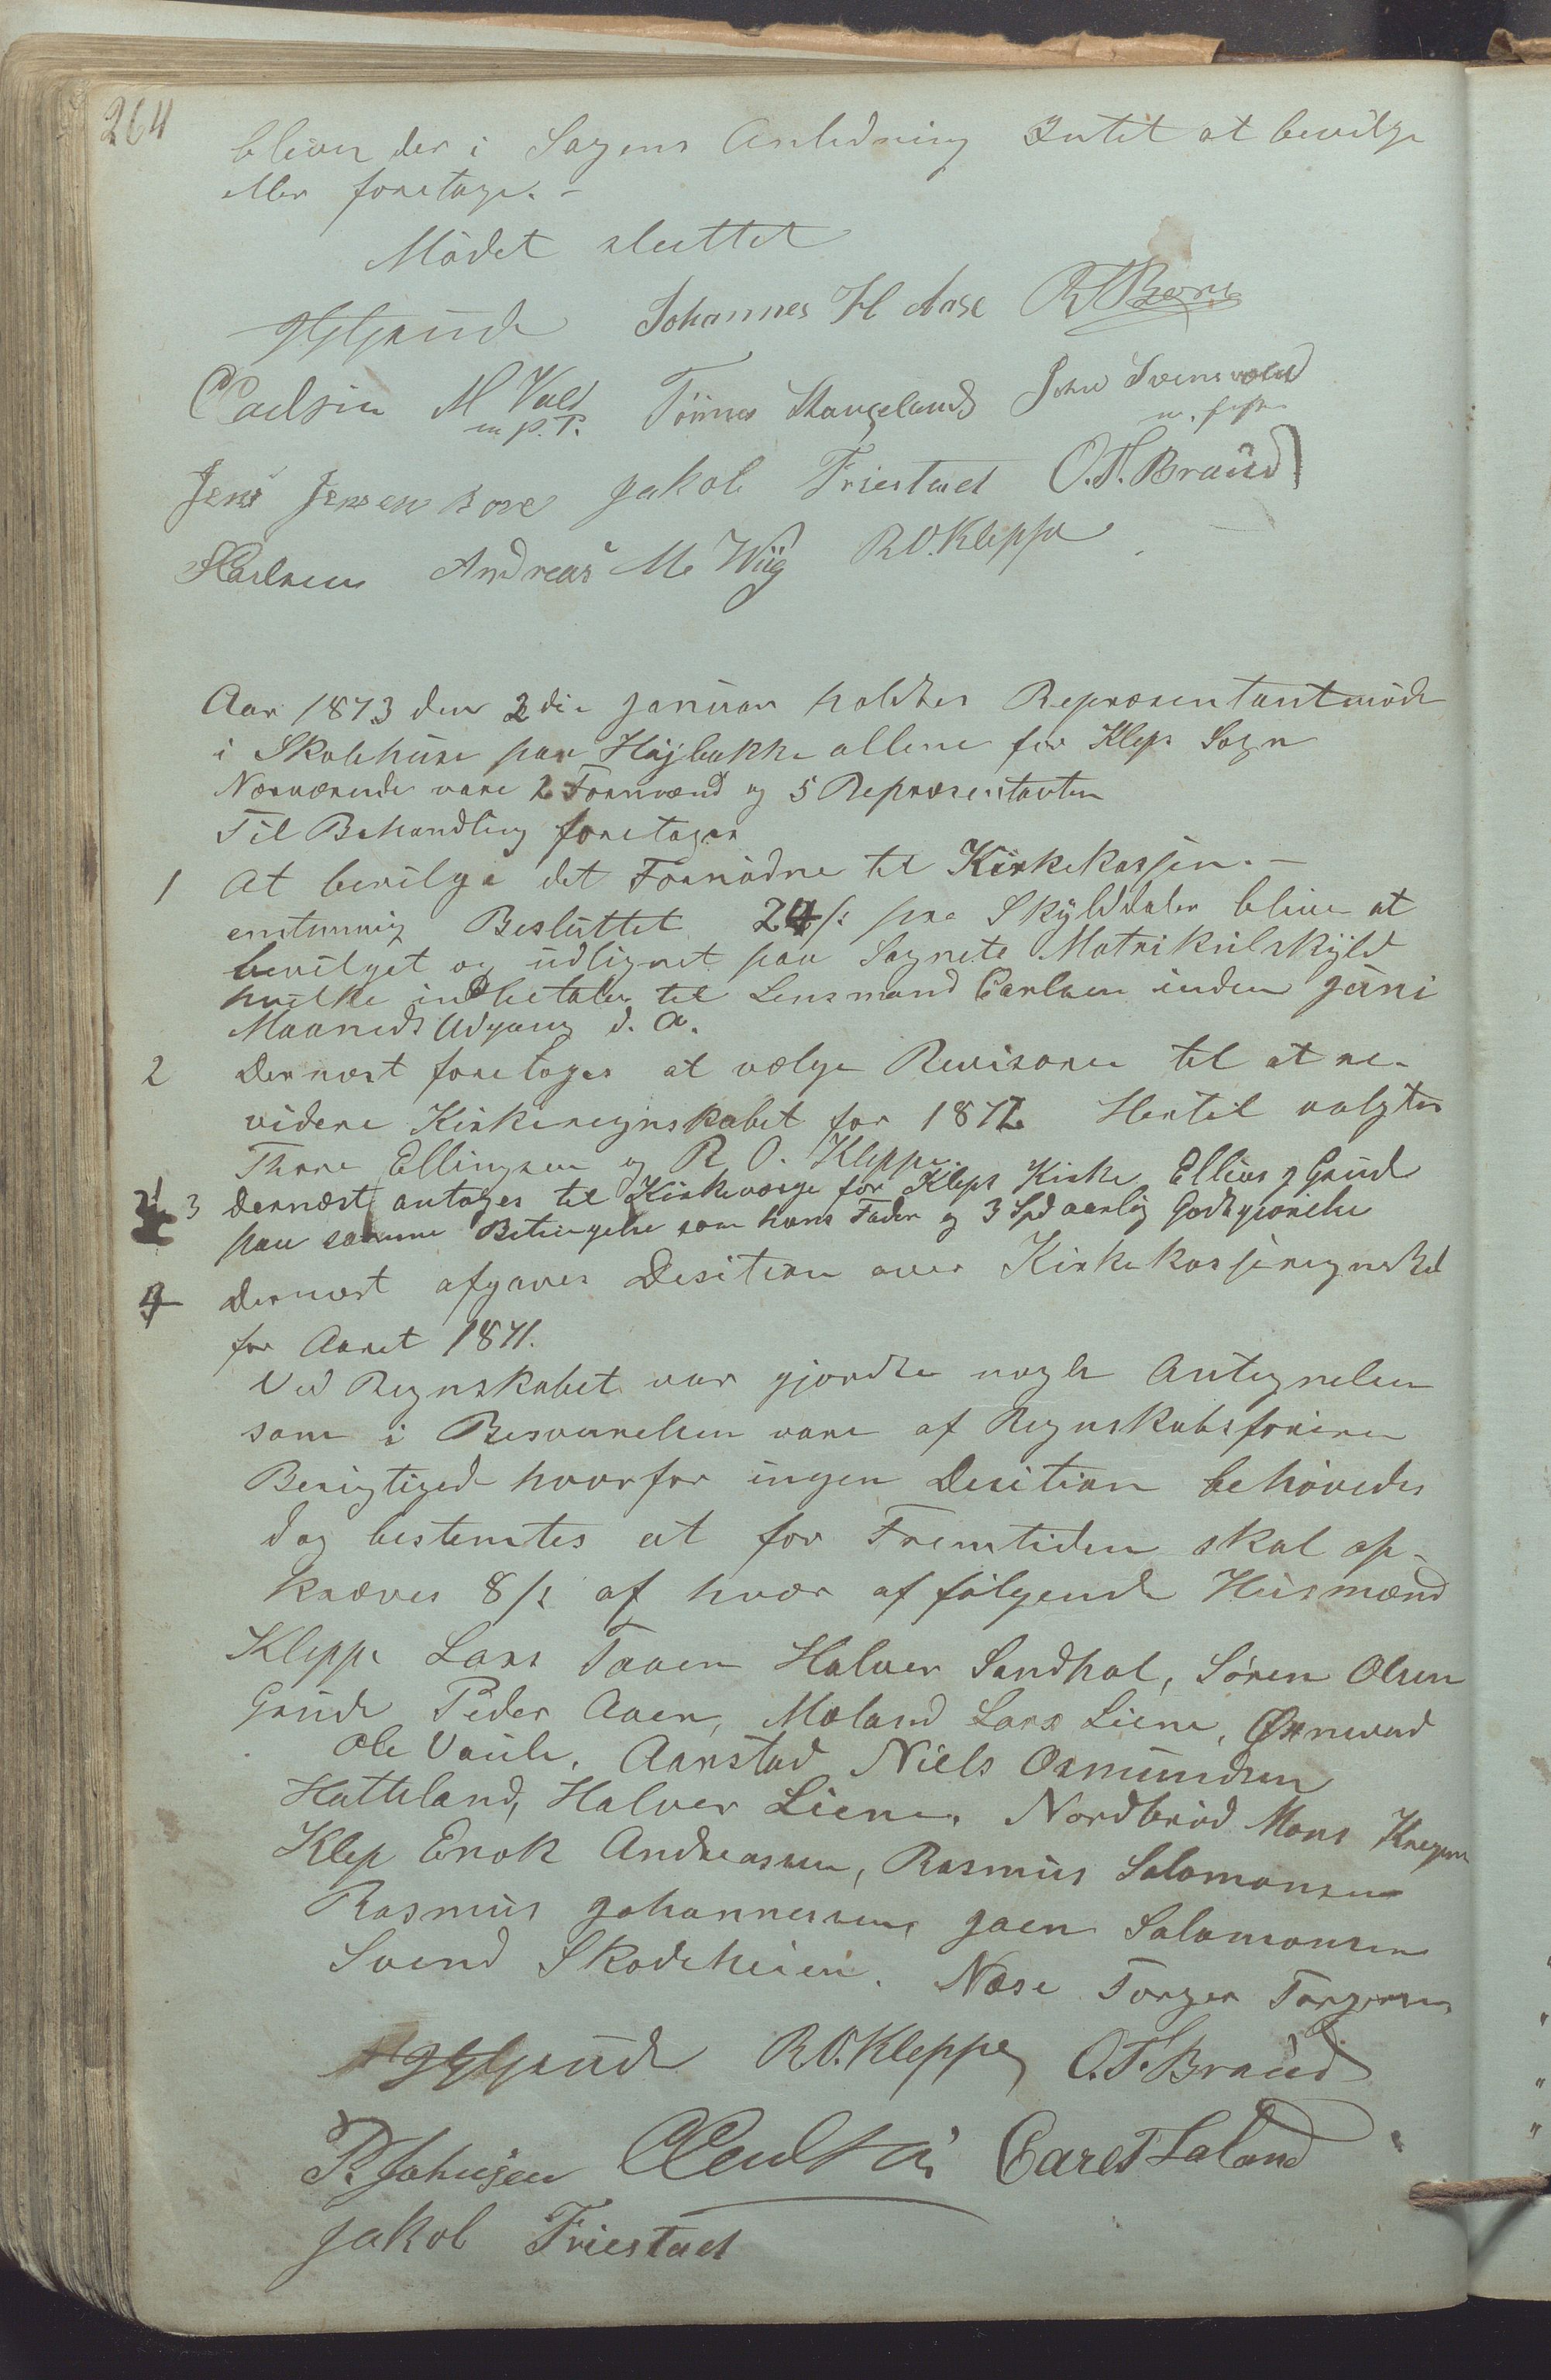 264
bliver der i Sagens Anledning Intet at bevilge
eller foretage. -
Mödet sluttet
Johannes H Aase
M Vold Tönnes Stangeland John Svensvold
m. p. P.
Jens Jensen Bore Jakob Friestad O. T. Braud
Andreas M. Wiig R O. Kleppe
Aar 1873 den 2den Januar holdtes Repræsentantmöde
i Skolehuse paa Höjbakke allene for Klep Sogn
Nærværende vare 2 Formænd og 5 Repræsentanter
Til Behandling foretages
1 At bevilge det Fornödne til Kirkekassen. -
enstemmig Besluttet 24 /s pro Skylddaler bliver at
bevilget og udlignet paa Sognets Matrikulskyld
hvilke indbetales til Lensmand Carlsen inden Juni
Maaneds Udgang d. A.
2 Dernæst foretages at vælge Revisorer til at re-
videre Kirkeregnskabet for 1872 Hertil valgtes
Thore Ellingsen og R O. Kleppe.
3 Dernæst antages til Kirkeværge for Kleps Kirke Ellias J Grude
paa samme Betingelse som hans Fader og 3 Spd aarlig Godtgiörelse
4 Dernæst afgaves Desition over Kirkekasseregnskab
for Aaret 1871.
Ved Regnskabet var gjordte nogle Antegnelser
som i Besvarelsen vare af Regnskabsföreren
Berigtiged hvorfor ingen Desition behövedes
dog bestemtes at for Fremtiden skal op-
kræves 8 /s af hver af fölgende Husmænd
Kleppe Lars Taaen Halver Sandhol, Sören Olsen
Grude Peder Aaen, Moland Lars Liene, Öxnevad
Ole Vaule. Aanstad Niels Osmundsen
Hatteland, Halver Liene. Nordbröd Mons
Klep Enok Andreassen, Rasmus Salomonsen
Rasmus Johannessen, Salomonsen
Svend Skodeheien. Næse Torger Torgersen
R O. Kleppe O. T. Braud
P. Johnsen Carl T Laland
Jakob Friestad